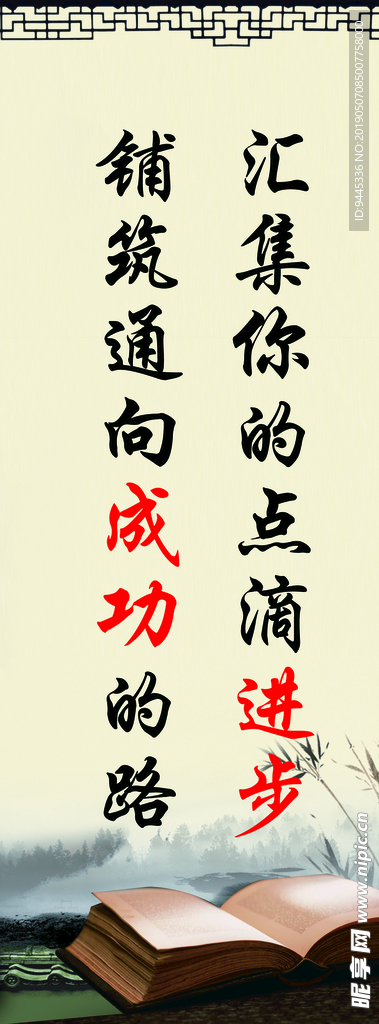 汇集你的点滴进步
铺筑通向成功的路
ID:9445336 NO:20190507085007758000
昵享网 www.nipic.cn